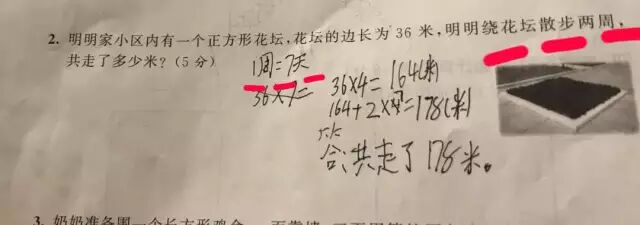 2. 明明家小区内有一个正方形花坛,花坛的边长为 36 米,明明绕花坛散步两周,
共走了多少米?(5 分)
1周=7天
36×7=
36×4=164(米)
164+2×7=178(米)
答:共走了178米。
3. 奶奶准备围一个长方形鸡舍,一面靠墙,